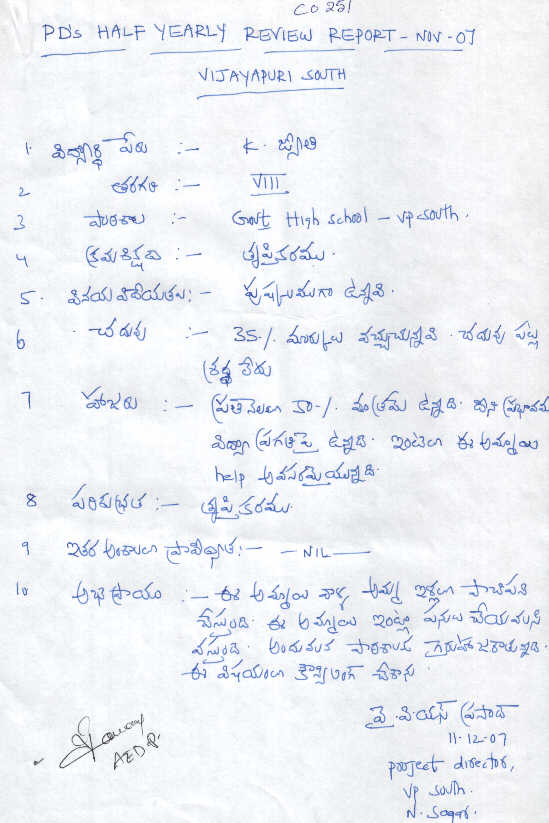 CO 251
PD's HALF YEARLY REVIEW REPORT - NOV-07
VIJAYAPURI SOUTH
1. విద్యార్థి పేరు :- K. జ్యోతి
2 తరగతి :- VIII
3 పాఠశాల :- Govt High school - VP south.
4 క్రమశిక్షణ :- తృప్తికరము.
5. వినయ విధేయతలు :- పుష్కలముగా ఉన్నవి.
6 చదువు :- 35·/. మార్కులు వచ్చుచున్నవి. చదువు పట్ల
శ్రద్ధ లేదు
7 హాజరు :- ప్రతి నెలలో 50·/. మాత్రమే ఉన్నది. దీని ప్రభావము
విద్యా ప్రగతిపై ఉన్నది. ఇంటిలో ఈ అమ్మాయి
help అవసరమైయున్నది.
8 పరిశుభ్రత :- తృప్తికరము.
9 ఇతర అంశాలలో ప్రావీణ్యత :- - NIL -
10 అభిప్రాయం :- ఈ అమ్మాయి వాళ్ళ అమ్మ ఇళ్లలో పాచిపని
చేస్తుంది. ఈ అమ్మాయి ఇంట్లో పనులు చేయవలసి
వస్తుంది. అందువలన పాఠశాలకు గైరుహాజరౌతున్నది.
ఈ విషయంలో కౌన్సిలింగ్ చేశాను.
వై. వి.యస్ ప్రసాద్
11-12-07
project director,
VP south.
N. Sagar.
AEDP.